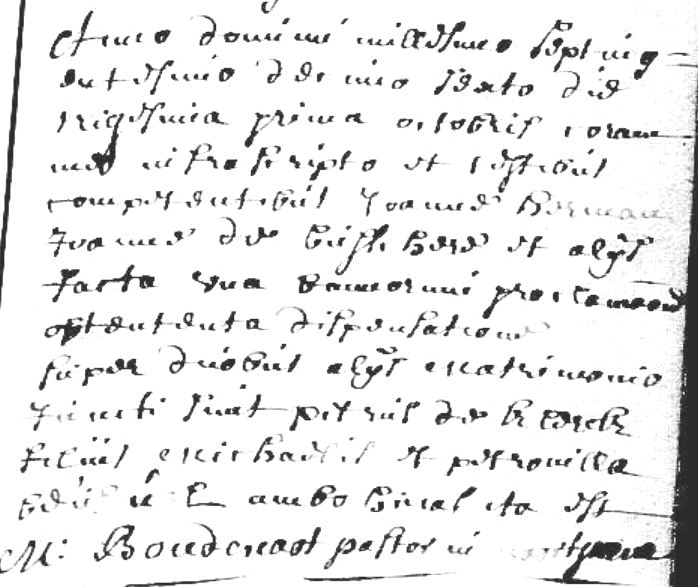 Anno domini millesimo septing
entesimo decimo sexto die
trigesima prima octobris coram
me infrascripto et testibus
competentibus Joanne herman
Joanne de busschere et alÿs
facta una bannorum proclamaone
obtententa dispensatione
super duobus alÿs matrimonio
Juncti sunt petrus de klerck
filius michaelis et petronilla
ambo hinc ita est
M: Boudenaot pastor in